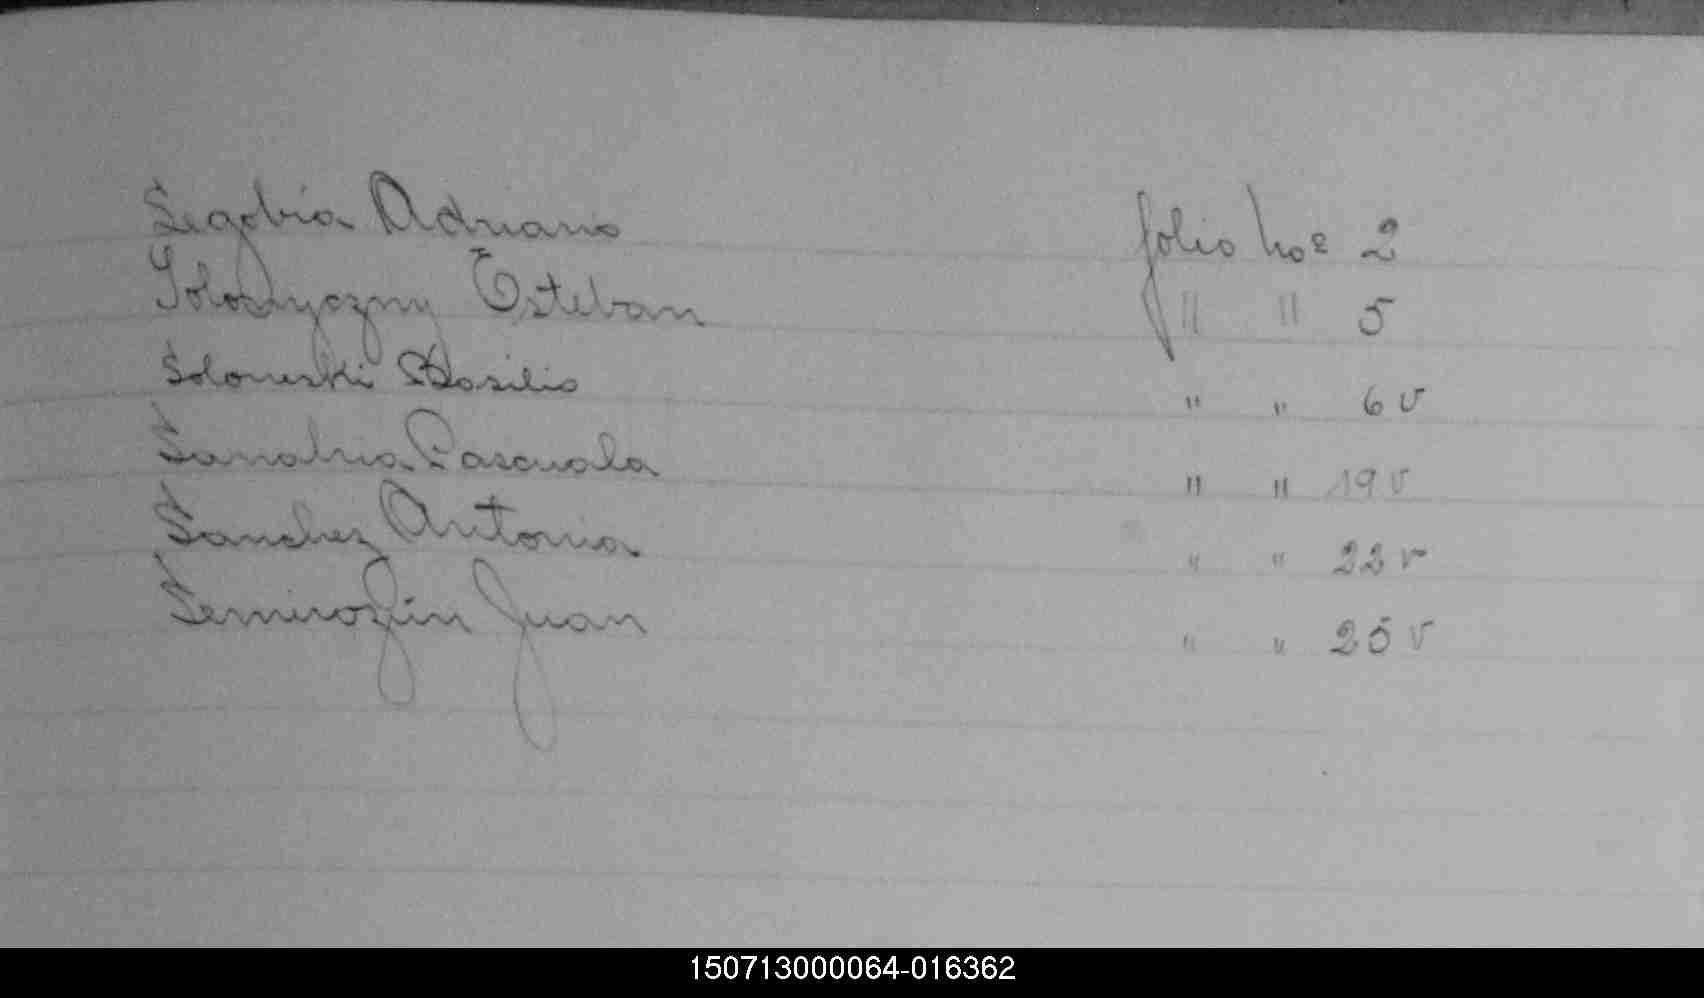 Segobia Adriano folio No 2
Solomyczny Esteban " " 5
Soloneski Basilio " " 6 v
Sanabria Pascuala " " 19 v
Sanchez Antonia " " 22 v
Semirozún Juan " " 25 v
150713000064-016362